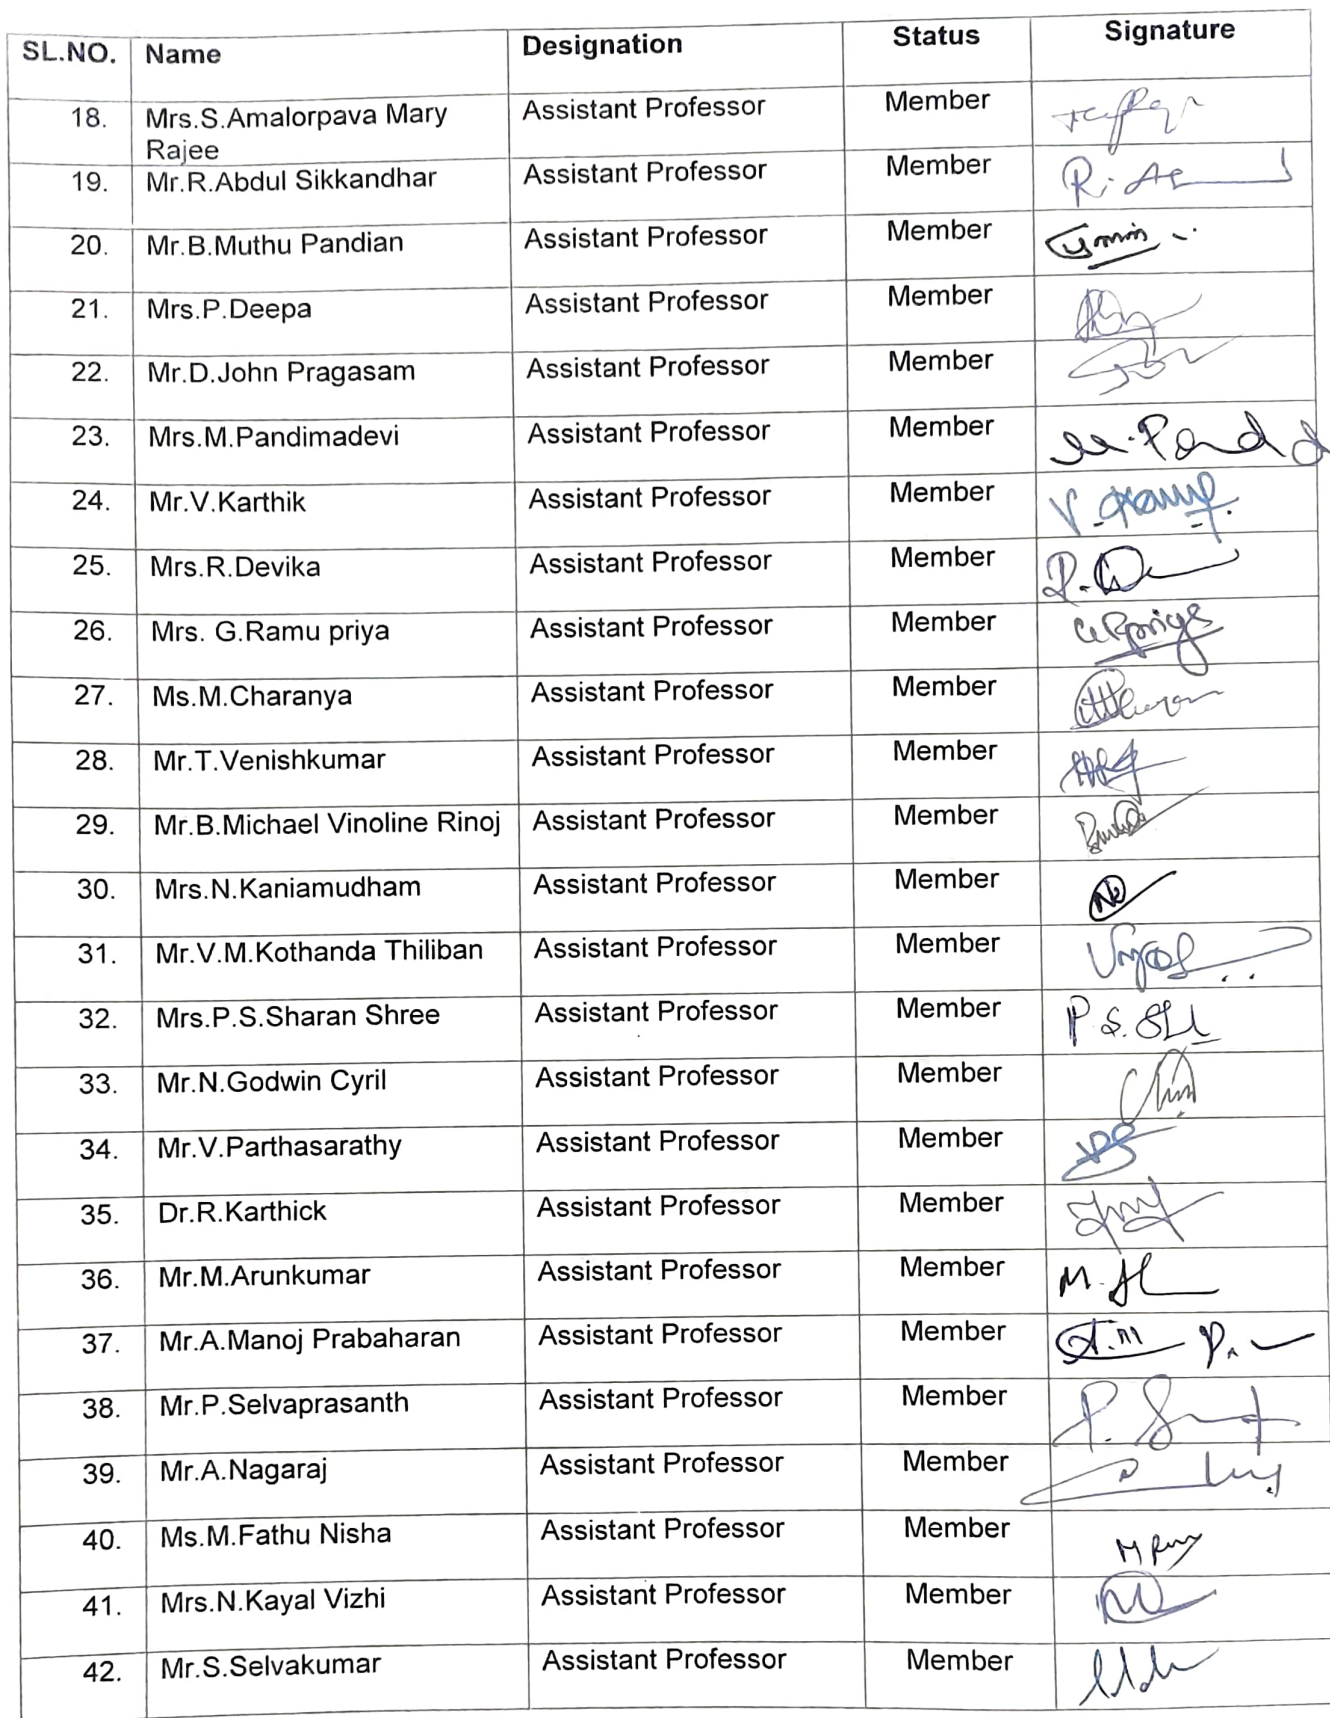 SL.NO. Name Designation Status Signature
18. Mrs.S.Amalorpava Mary Assistant Professor Member
Rajee
19. Mr.R.Abdul Sikkandhar Assistant Professor Member
20. Mr.B.Muthu Pandian Assistant Professor Member
21. Mrs.P.Deepa Assistant Professor Member
22. Mr.D.John Pragasam Assistant Professor Member
23. Mrs.M.Pandimadevi Assistant Professor Member
24. Mr.V.Karthik Assistant Professor Member
25. Mrs.R.Devika Assistant Professor Member
26. Mrs. G.Ramu priya Assistant Professor Member
27. Ms.M.Charanya Assistant Professor Member
28. Mr.T.Venishkumar Assistant Professor Member
29. Mr.B.Michael Vinoline Rinoj Assistant Professor Member
30. Mrs.N.Kaniamudham Assistant Professor Member
31. Mr.V.M.Kothanda Thiliban Assistant Professor Member
32. Mrs.P.S.Sharan Shree Assistant Professor Member
33. Mr.N.Godwin Cyril Assistant Professor Member
34. Mr.V.Parthasarathy Assistant Professor Member
35. Dr.R.Karthick Assistant Professor Member
36. Mr.M.Arunkumar Assistant Professor Member
37. Mr.A.Manoj Prabaharan Assistant Professor Member
38. Mr.P.Selvaprasanth Assistant Professor Member
39. Mr.A.Nagaraj Assistant Professor Member
40. Ms.M.Fathu Nisha Assistant Professor Member
41. Mrs.N.Kayal Vizhi Assistant Professor Member
42. Mr.S.Selvakumar Assistant Professor Member